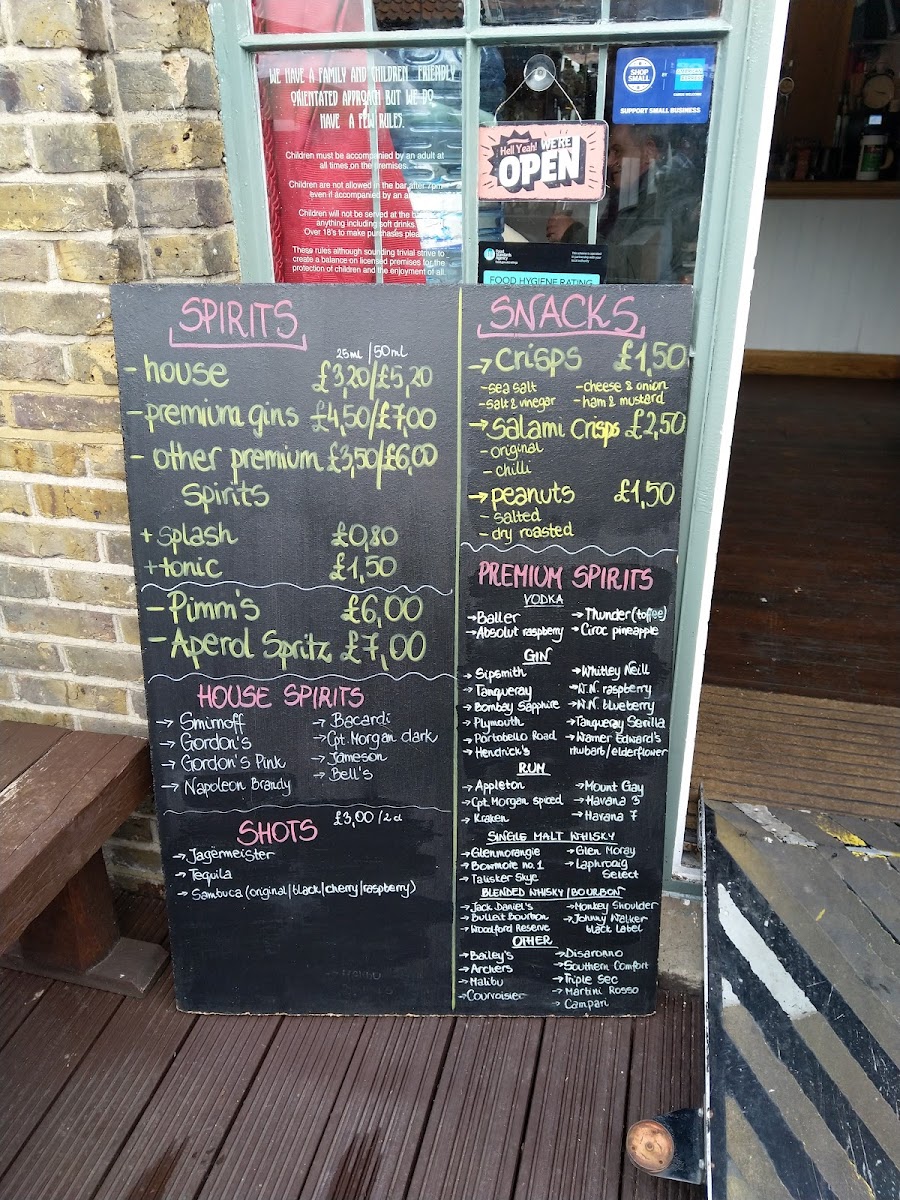 WE HAVE A FAMILY AND CHILDREN FRIENDLY
ORIENTATED APPROACH BUT WE DO
HAVE A FEW RULES.
Children must be accompanied by an adult at
all times on the premises.
Children are not allowed in the bar after 7pm
even if accompanied by an
Children will not be served at the
anything including soft drinks.
Over 18's to make purchases
These rules although sounding trivial strive to
create a balance on licensed premises for the
protection of children and the enjoyment of all.
Hell Yeah! WE'RE
OPEN
SHOP
SMALL
BY
AMERICAN
EXPRESS
SUPPORT SMALL BUSINESS
Food
Standards
Agency
FOOD HYGIENE RATING
SPIRITS
25ml / 50ml
- house £3,20/£5,20
- premium gins £4,50/£7,00
- other premium £3,50/£6,00
spirits
+ splash £0,80
+ tonic £1,50
- Pimm's £6,00
- Aperol Spritz £7,00
HOUSE SPIRITS
→ Smirnoff → Bacardi
→ Gordon's → Cpt. Morgan dark
→ Gordon's Pink → Jameson
→ Napoleon Brandy → Bell's
SHOTS £3,00/2cl
→ Jagermeister
→ Tequila
→ Sambuca (original/black/cherry/raspberry)
SNACKS
→ crisps £1,50
- sea salt - cheese & onion
- salt & vinegar - ham & mustard
→ salami crisps £2,50
- original
- chilli
→ peanuts £1,50
- salted
- dry roasted
PREMIUM SPIRITS
VODKA
→ Baller → Thunder (toffee)
→ Absolut raspberry → Ciroc pineapple
GIN
→ Sipsmith → Whitley Neill
→ Tanqueray → W.N. raspberry
→ Bombay Sapphire → W.N. blueberry
→ Plymouth → Tanqueray Sevilla
→ Portobello Road → Warner Edward's
→ Hendrick's rhubarb/elderflower
RUM
→ Appleton → Mount Gay
→ Cpt. Morgan spiced → Havana 3
→ Kraken → Havana 7
SINGLE MALT WHISKY
→ Glenmorangie → Glen Moray
→ Bowmore no. 1 → Laphroaig
→ Talisker Skye Select
BLENDED WHISKY/BOURBON
→ Jack Daniel's → Monkey Shoulder
→ Bulleit Bourbon → Johnny Walker
→ Woodford Reserve black label
OTHER
→ Bailey's → Disaronno
→ Archers → Southern Comfort
→ Malibu → Triple Sec
→ Courvoisier → Martini Rosso
→ Campari